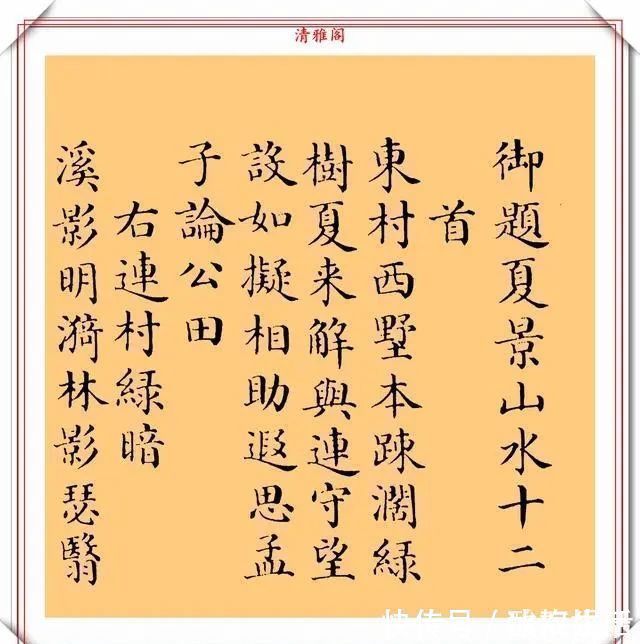 清雅阁
御題夏景山水十二
首
東村西墅本踈濶緑
樹夏来解與連守望
設如擬相助遐思孟
子論公田
右連村緑暗
溪影明漪林影瑟翳